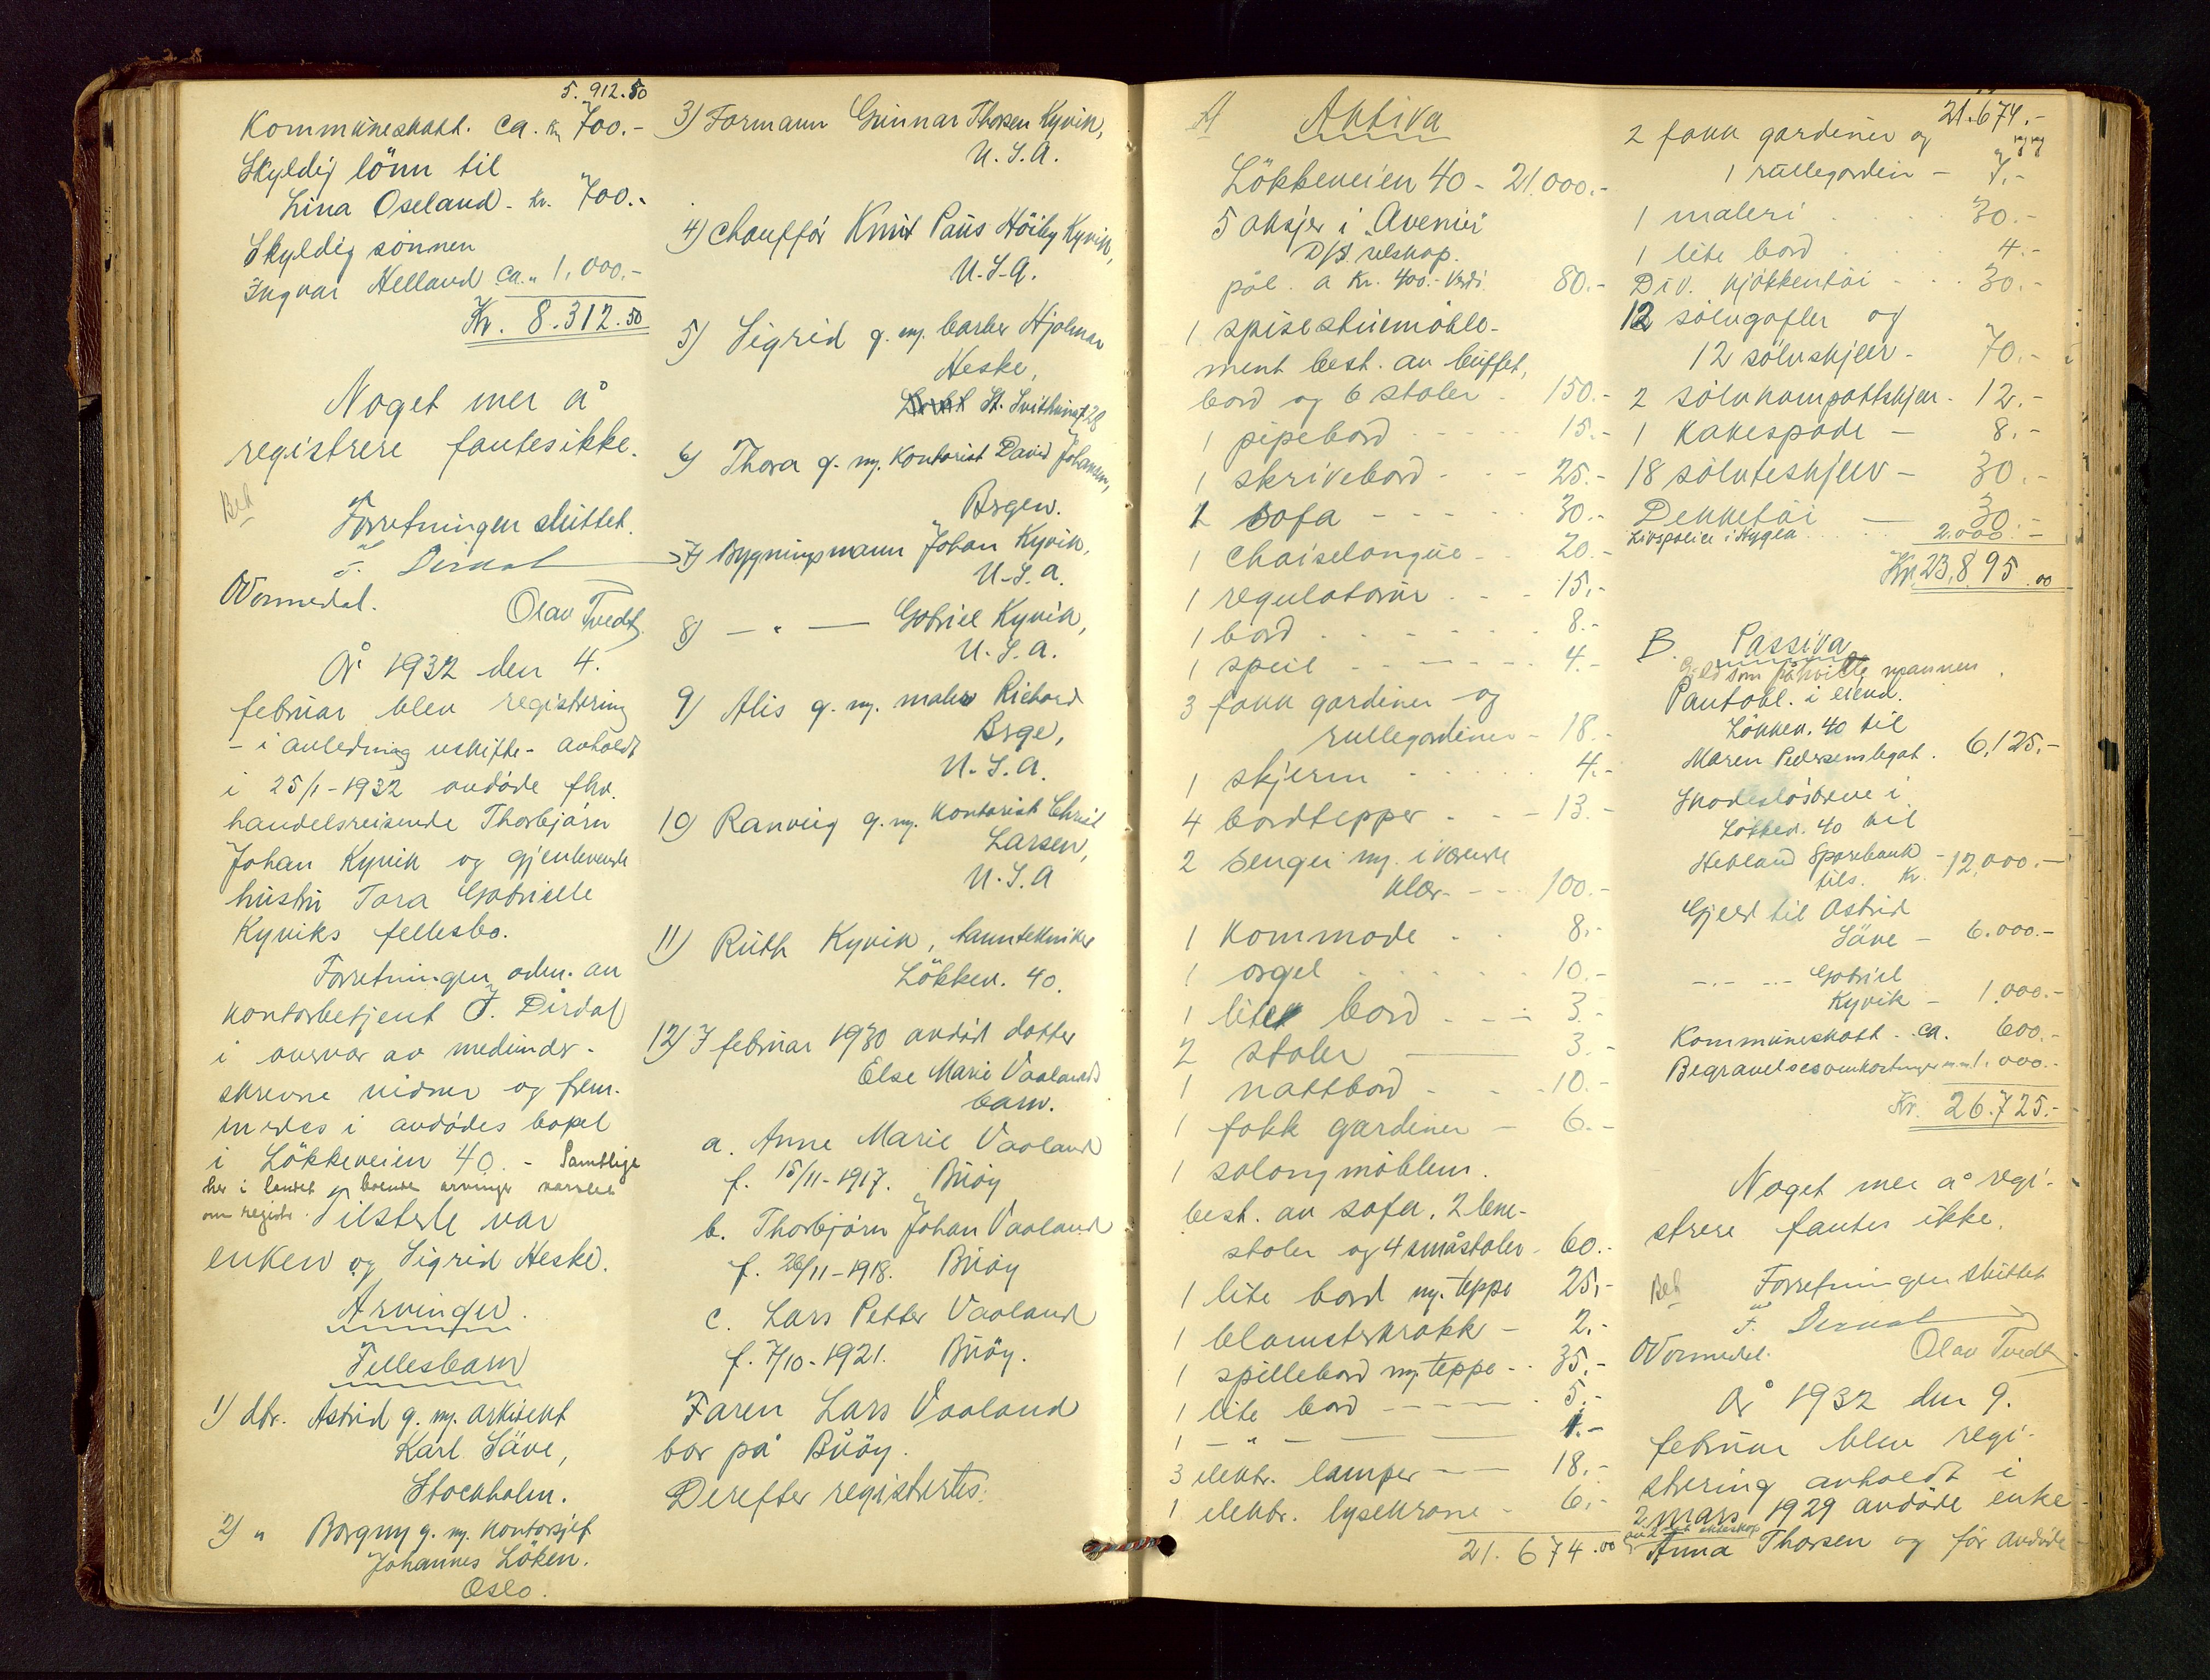 5.912.50
Kommuneskatt. ca. kr 700.-
Skyldig lönn til
Lina Oseland - kr. 700.-
Skyldig sönnen
Ingvar Helland ca. " 1,000.-
Kr. 8.312.50
Noget mer å
registrere fantes ikke.
Forretningen sluttet.
Olav Tvedt
År 1932 den 4.
februar blev registrering
- i anledning uskifte - avholdt
i 25/1-1932 avdöde fhv.
handelsreisende Thorbjörn
Johan Kyvik og gjenlevende
hustru Tora Gabrielle
Kyviks fellesbo.
Forretningen adm. av
kontorbetjent J. Dirdal
i overvær av medunder-
skrevne vidner og frem-
medes i avdödes bopel
i Lökkeveien 40. - Samtlige
her i landet boende arvinger varslet
om registr. Tilstede var
enken og Sigrid Heske.
Arvinger.
Fellesbarn
1) dtr. Astrid g. m. arkitekt
Karl Säve,
Stockholm.
2) " Borgny g. m. kontorsjef
Johannes Löken.
Oslo.
3) Formann Gunnar Thorsen Kyvik,
U.S.A.
4) Chaufför Knut Paus Höiby Kyvik,
U.S.A.
5) Sigrid g. m. barber Hjalmar
Heske,
St. Svithunsgt 28
6) Thora g. m. kontorist David Johansen,
Bergen.
7) Bygningsmann Johan Kyvik,
U.S.A.
8) — " — Gabriel Kyvik,
U.S.A.
9) Alis g. m. maler Richard
Berge,
U.S.A.
10) Ranveig g. m. kontorist Christ
Larsen,
U.S.A
11) Ruth Kyvik, tanntekniker
Lökkev. 40.
12) I februar 1930 avdöd datter
Else Marie Vaalands
barn.
a. Anne Marie Vaaland
f. 15/11-1917. Buöy
b. Thorbjörn Johan Vaaland
f. 26/11-1918. Buöy
c. Lars Petter Vaaland
f. 7/10-1921. Buöy.
Faren Lars Vaaland
bor på Buöy.
Derefter registrertes:
A Aktiva
Lökkeveien 40 - 21.000.-
5 aksjer i "Avenue"
D/S. selskap.
pål. a kr. 400.- Verdi 80.-
1 spisestuemöble-
ment best. av buffet,
bord og 6 stoler - 150.-
1 pipebord - - - 15.-
1 skrivebord - - - 25.-
1 sofa - - - - - 30.-
1 chaiselongue - - 20.-
1 regulatorur - - - 15.-
1 bord - - - - - 8.-
1 speil - - - - - 4.-
3 fakk gardiner og
rullegardiner - 18.-
1 skjerm - - - - 4.-
4 bordtepper - - - 13.-
2 senger m. iværende
klær - - - 100.-
1 kommode - - 8.-
1 orgel - - - - 10.-
1 litet bord - - - 3.-
2 stoler — 3.-
1 nattbord - - - 10.-
1 fakk gardiner - 6.-
1 salongmöblem.
best. av sofa, 2 lene-
stoler og 4 småstoler - 60.-
1 lite bord m. teppe 25.-
1 blomsterkrakk - 2.-
1 spillebord m. teppe - 35.-
1 lite bord - - - - 5.-
1 - " - — 1.-
3 elektr. lamper — 18.-
1 elektr. lysekrone - 6.-
21.674.00
21.674.-
2 fakk gardiner og
1 rullegardin - 7.-
1 maleri - - - 30.-
1 lite bord - - - 4.-
Div. kjökkentöi - - - 30.-
12 sölvgafler og
12 sölvskjeer - 70.-
2 sölvkompottskjeer - 12.-
1 kakespade - 8.-
18 sölvteskjeer - 30.-
Dekketöi — 30.-
Livspolice i Hygea 2.000.-
Kr. 23.895.00
B. Passiva
Gjeld som påhvilte mannen
Pantobl. i eiend.
Lökkev. 40 til
Maren Pedersens legat. 6.125.-
Skadeslösbreve i
Lökkev. 40 til
Hetland Sparebank
tils. kr. 12,000.-
Gjeld til Astrid
Säve - 6.000.-
-"- -"- Gabriel
Kyvik - 1.000.-
Kommuneskatt - ca. 600.-
Begravelsesomkostninger m.m. 1.000.-
Kr. 26.725.-
Noget mer å regi-
strere fantes ikke.
Forretningen sluttet
Olav Tvedt
År 1932 den 9.
februar blev regi-
strering avholdt i
2 mars 1929 avdöde enke
Anna Thorsen og för avdöde